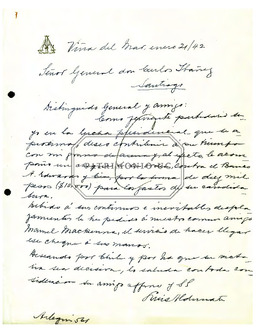 Viña del Mar, enero 21/42
Señor General don Carlos Ibáñez
Santiago
Distinguido General y amigo:
Como ferviente partidario
en la lucha presidencial, que se a
deseo contribuir a su triunfo
con mi grano de arena, y al efecto, le acom
paño un contra el Banco
A. Edwards y Cía, por la suma de diez mil
pesos ($10.000) para los gastos de su candida
tura.
Debido a sus continuos e inevitables despla
zamientos le he pedido a nuestro común amigo
Manuel Mackenna, el servicio de hacer llegar
ese cheque a sus manos.
por Chile y por
su decisión, lo saluda con toda con
sideración su amigo affmo y SS
PATRIMONIO